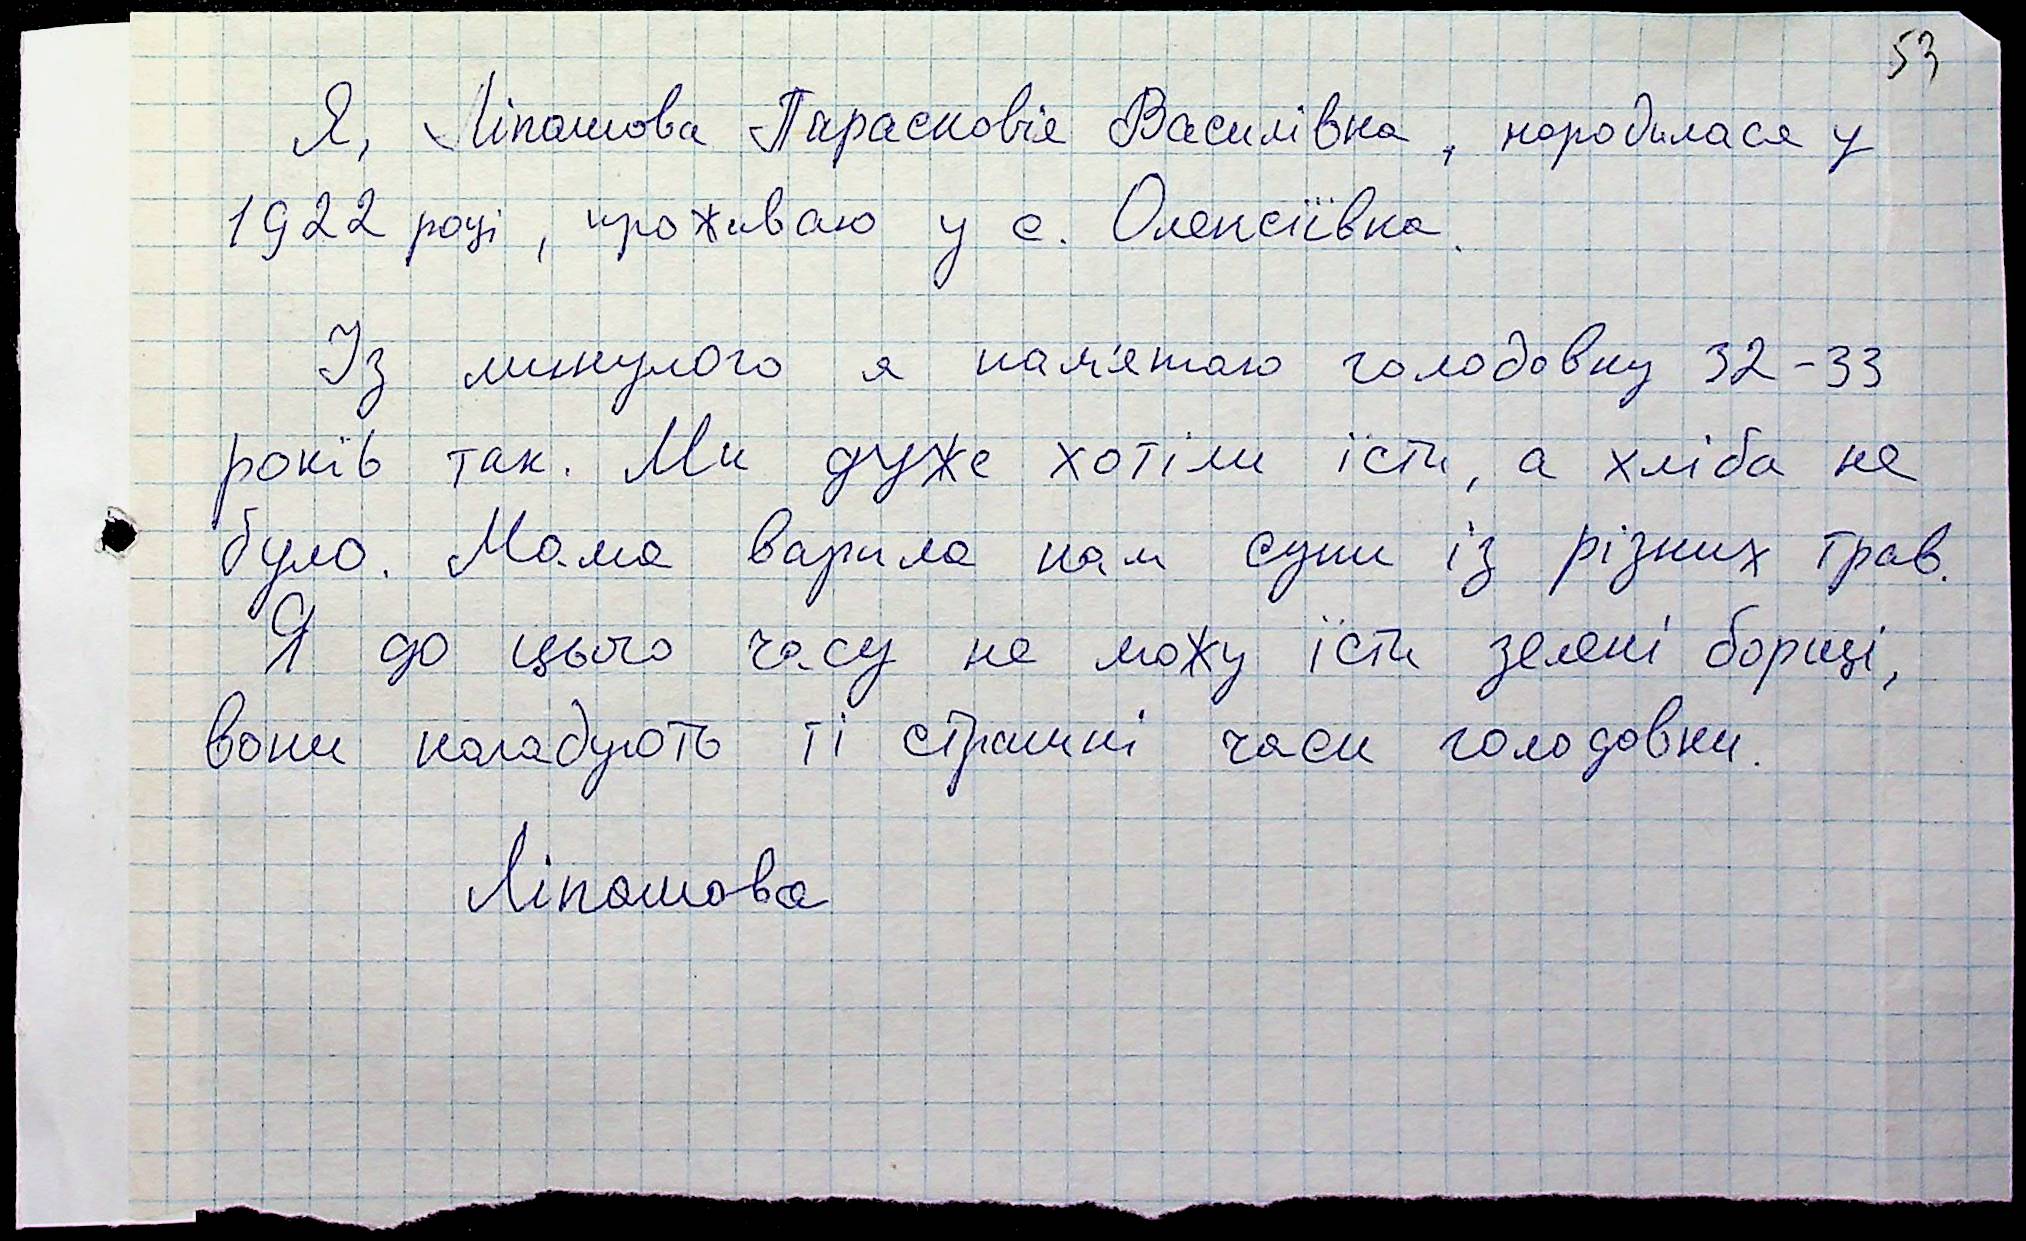 53
Я, Ліпашова Парасковія Василівна, народилася у
1922 році, проживаю у с. Олексіївка.
Із минулого я пам'ятаю голодовку 32-33
років так. Ми дуже хотіли їсти, а хліба не
було. Мама варила нам супи із різних трав.
Я до цього часу не можу їсти зелені борщі,
вони нагадують ті страшні часи голодовки.
Ліпашова